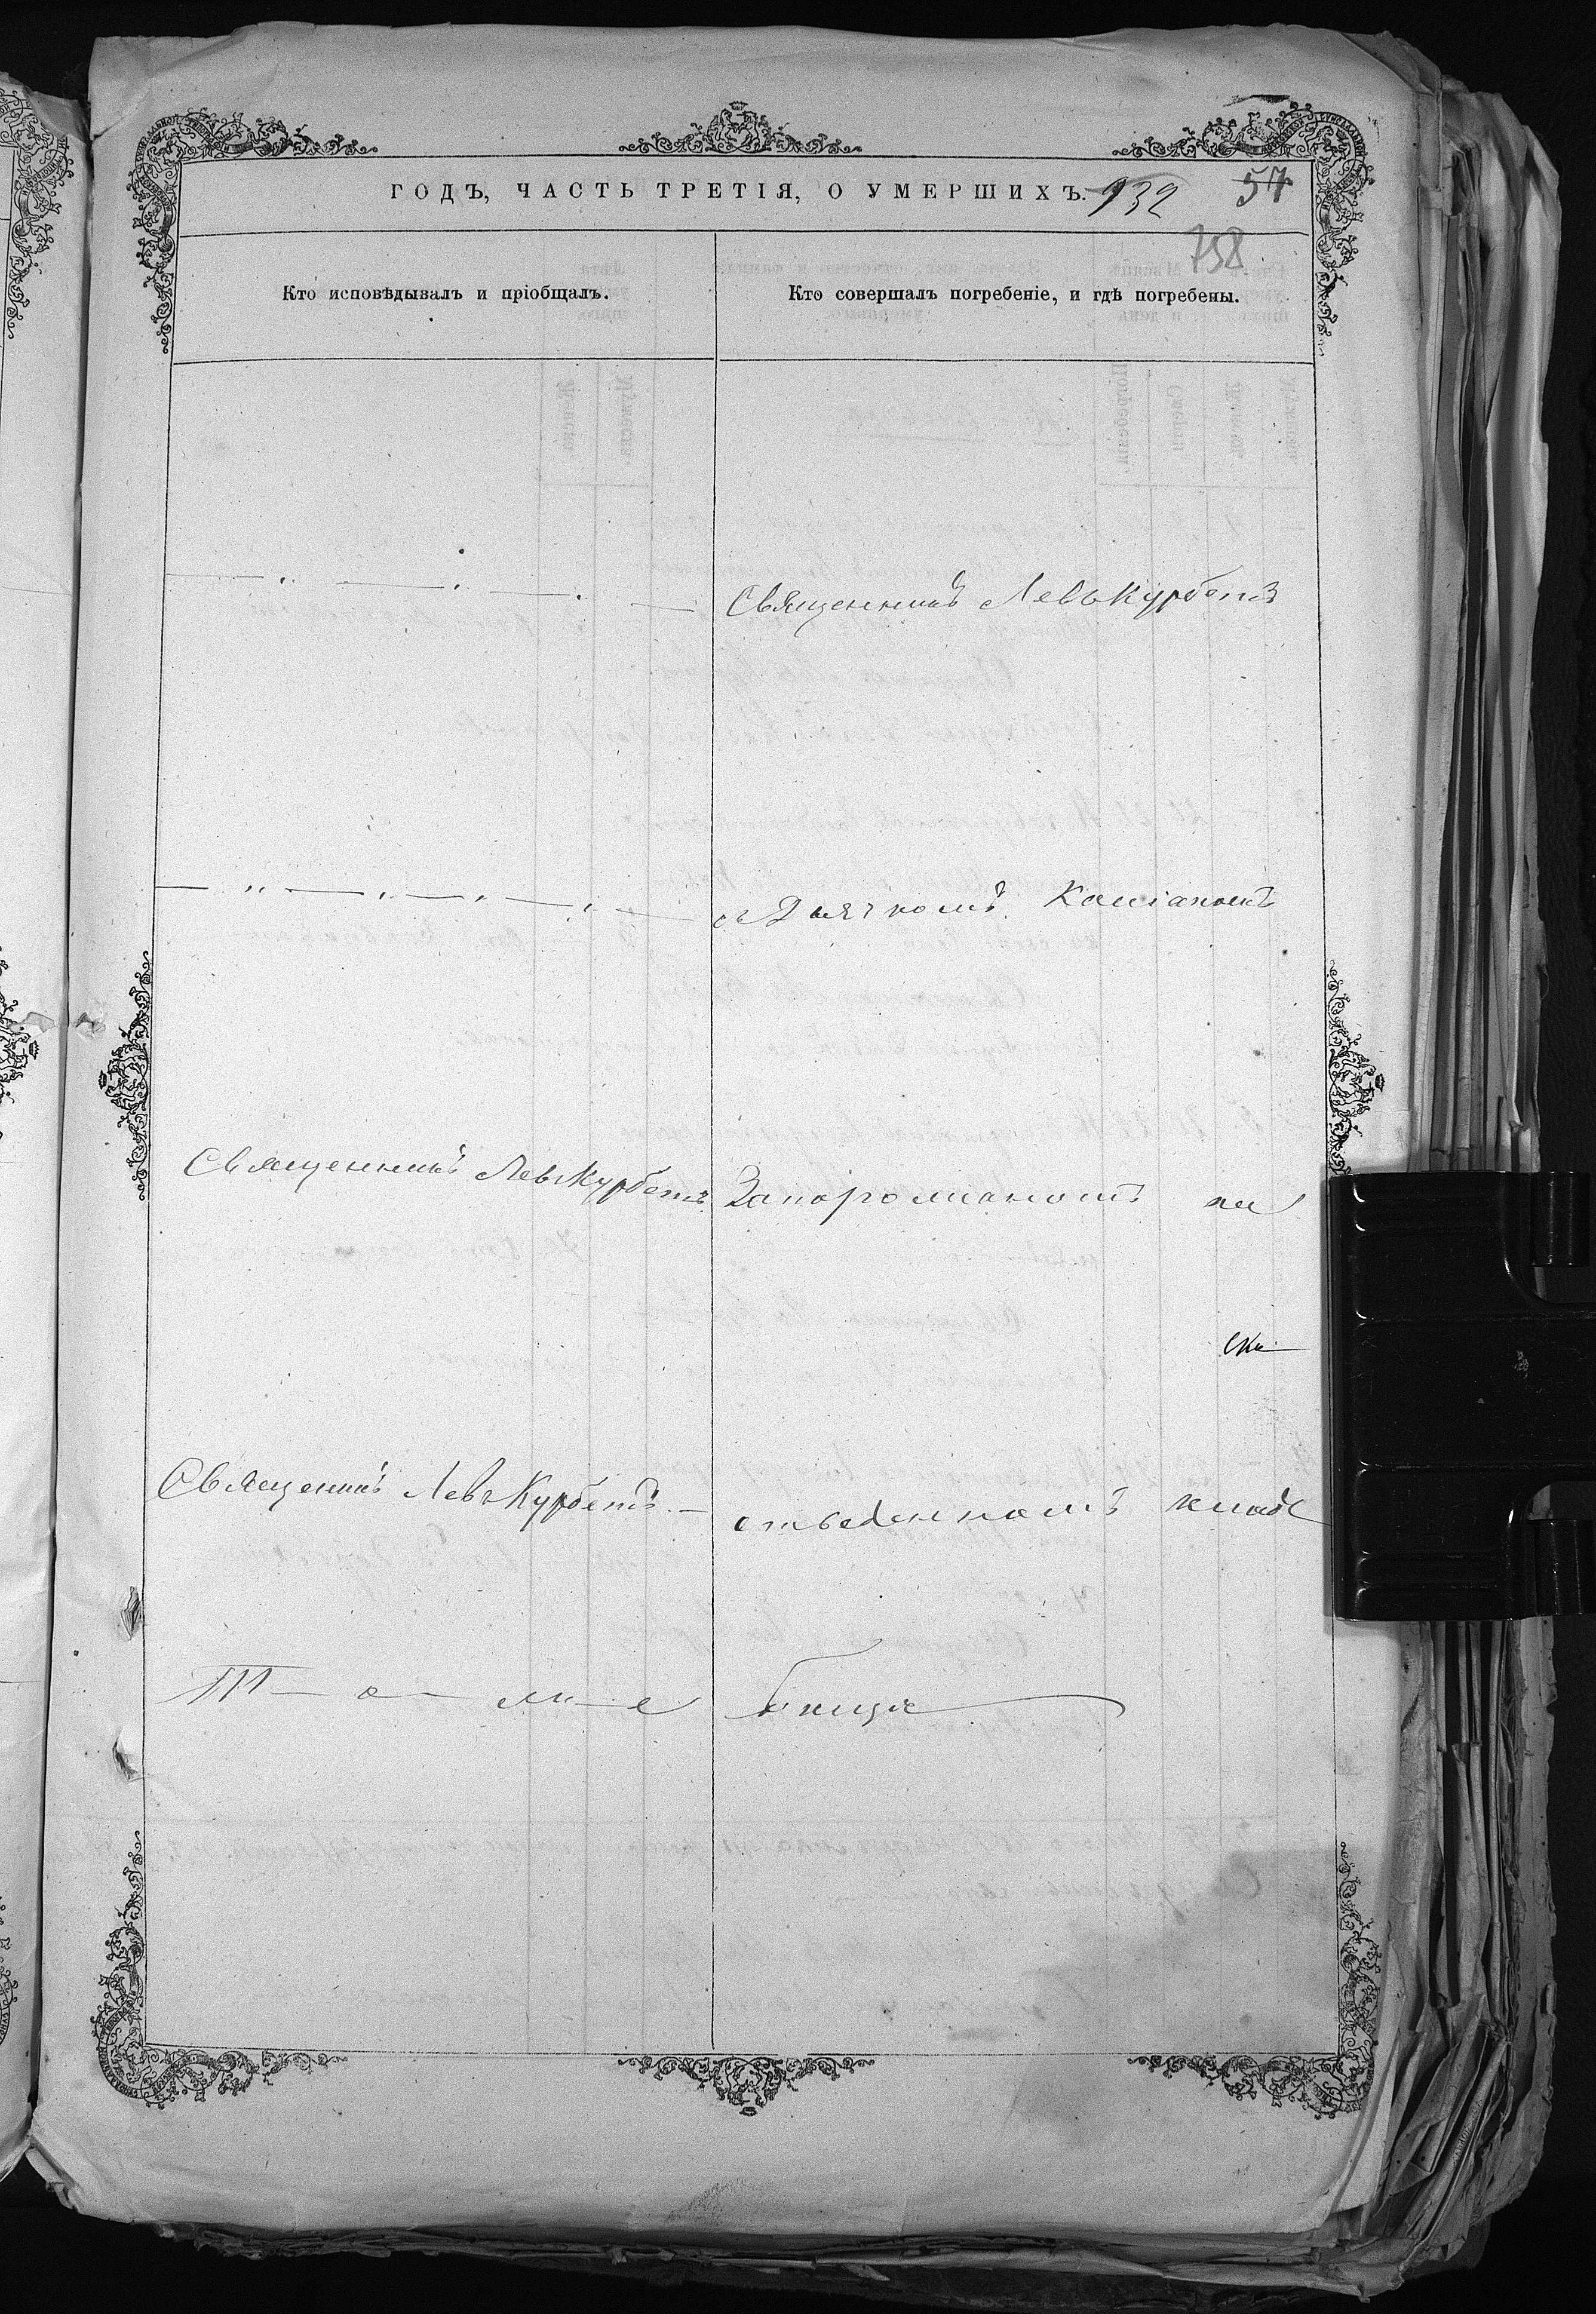 ГОДЪ, ЧАСТЬ ТРЕТІЯ, О УМЕРШИХЪ.
932
57
758
Кто исповѣдывалъ и пріобщалъ.
Кто совершалъ погребеніе, и гдѣ погребены.
Священникъ Левъ Курбетъ
съ Дьячкомъ Касіаномъ
Священникъ Левъ Курбетъ
Запорожаномъ на
Священникъ Левъ Курбетъ
отведенномъ клад
Т о м е
бищѣ